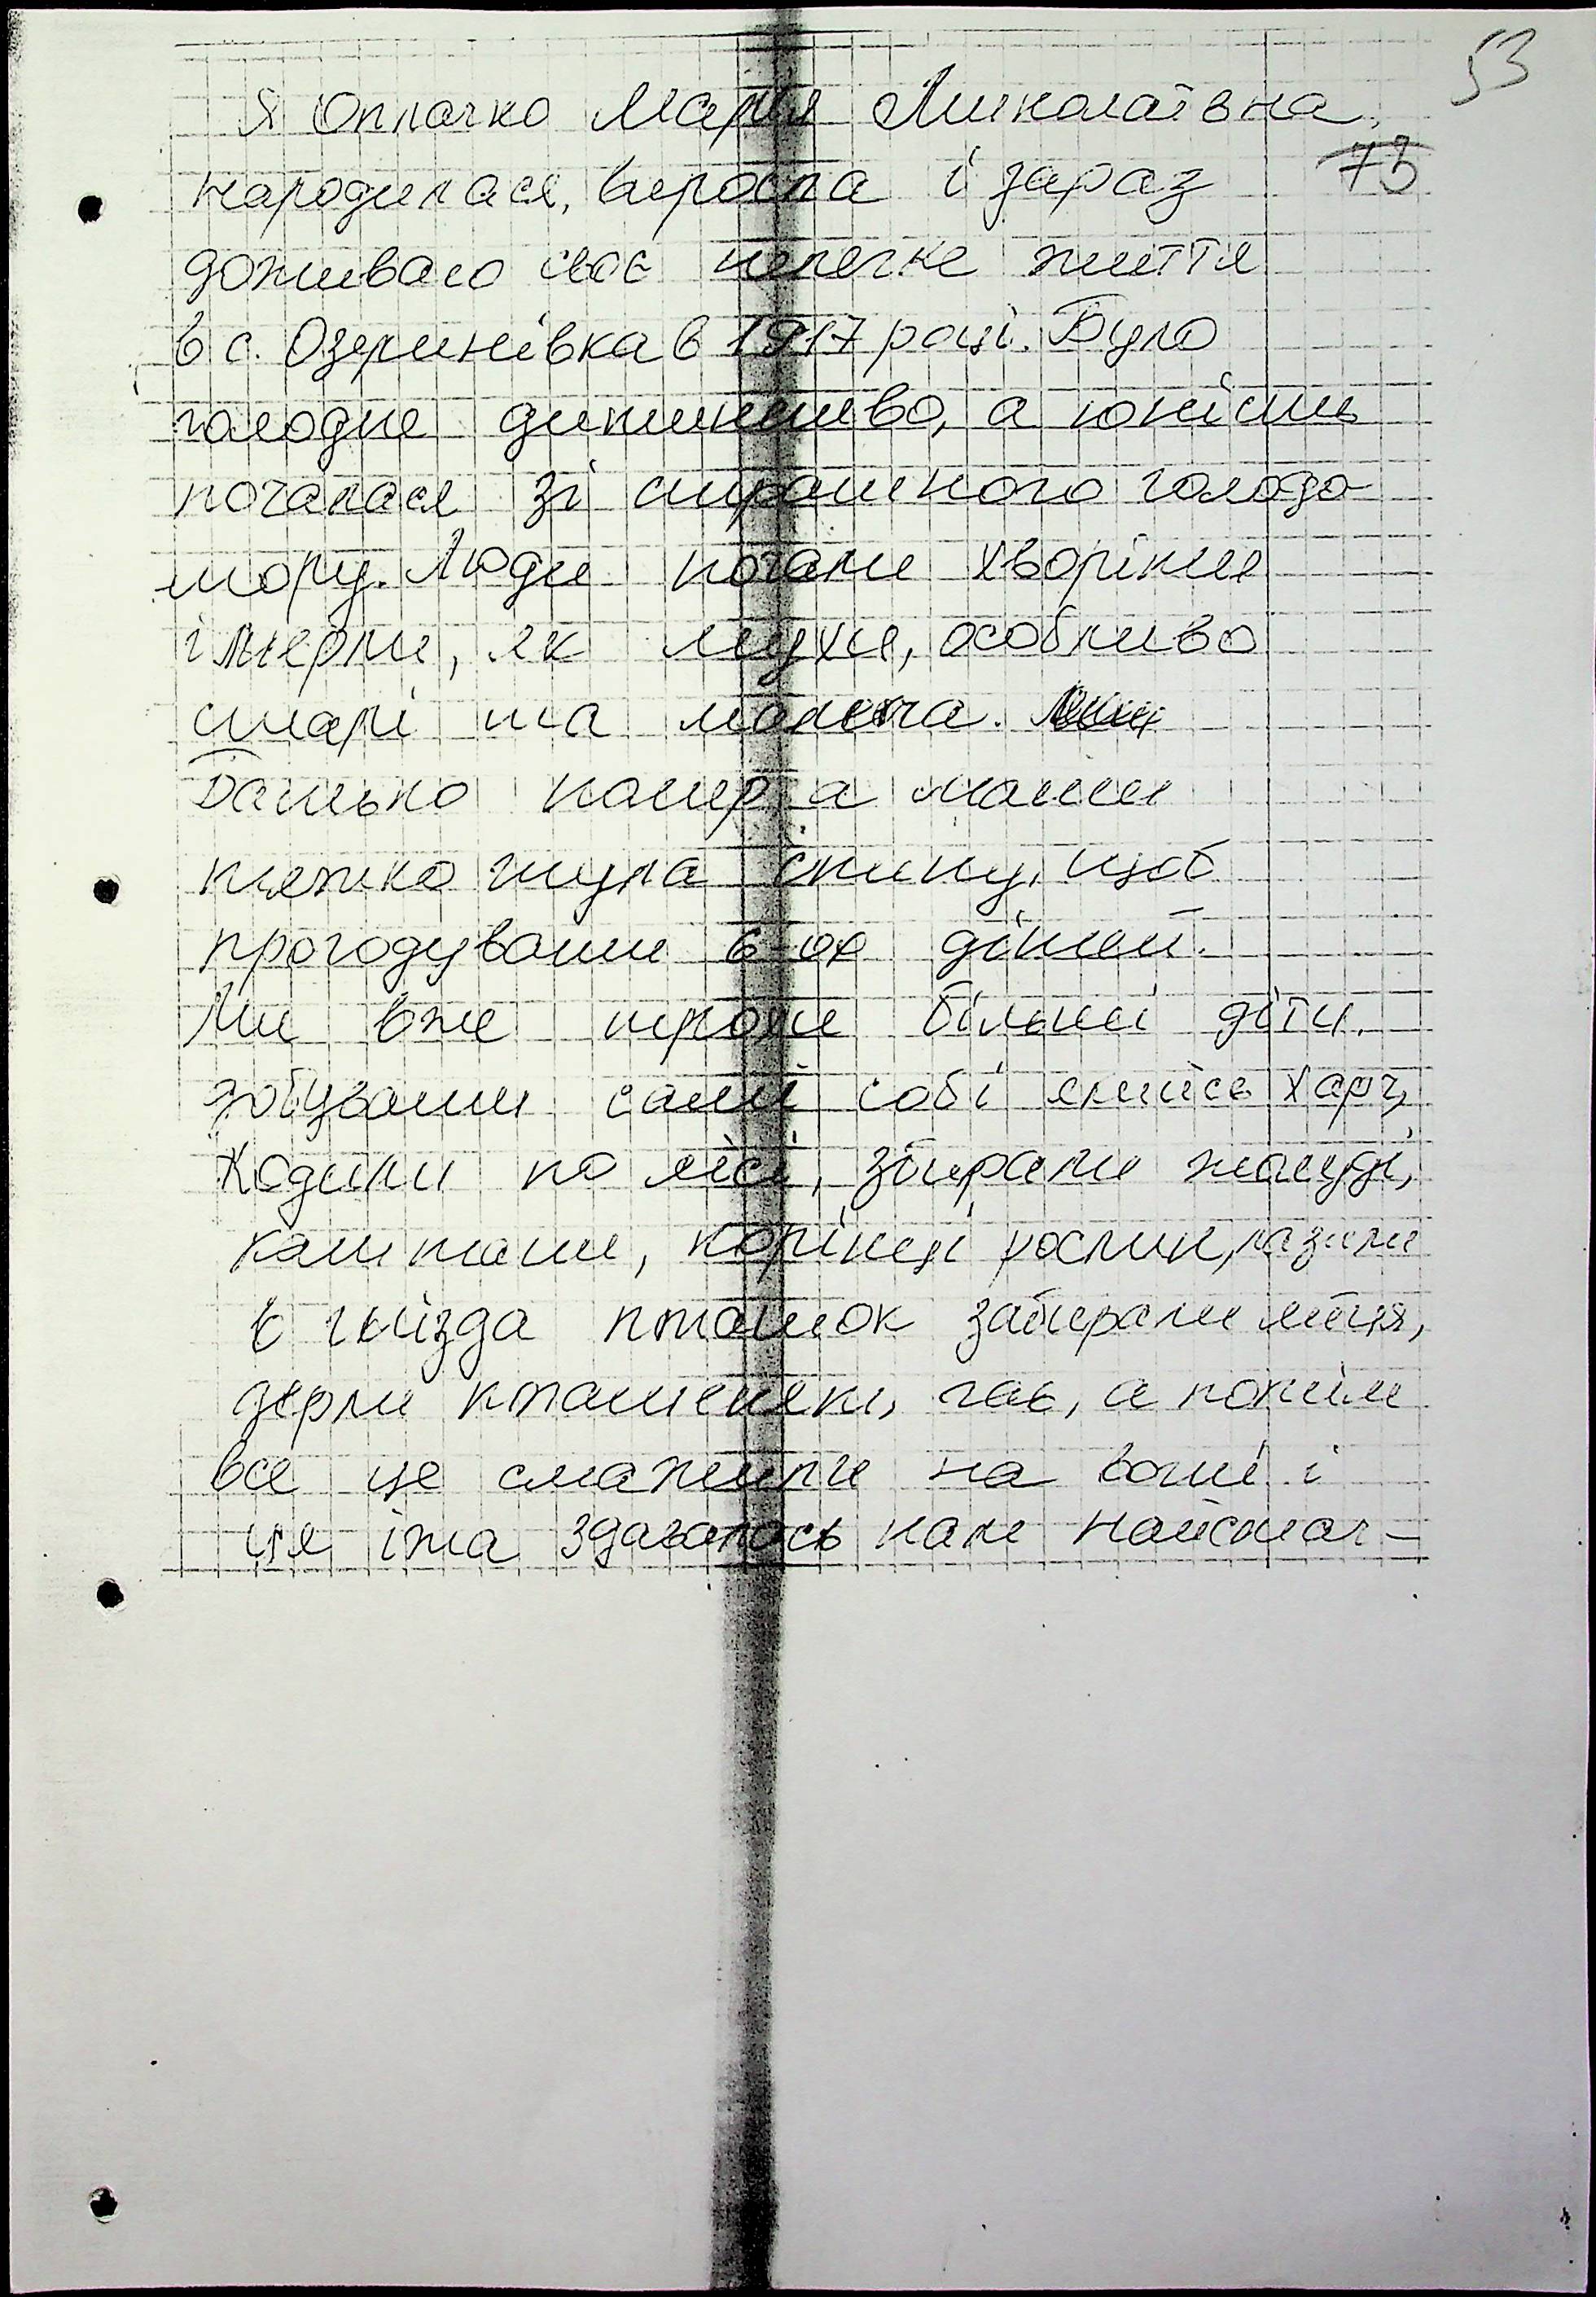 53
Я Оплачко Марія Миколаївна,
народилася, виросла і зараз 73
доживаю своє нелегке життя
в с. Озеринівка в 1917 році. Було
голодне дитинство, а юність
почалася зі страшного голодо-
мору. Люди почали хворіти
і мерли, як мухи, особливо
старі та малеча.
Батько помер, а мати
тяжко гнула спину, щоб
прогодувати 6-ох дітей.
Ми вже трохи більші діти
добували самі собі якийсь харч,
ходили по лісі, збирали жолуді,
каштани, корінці рослин, лазили
в гнізда пташок забирали яйця,
дерли пташеняки, гав, а потім
все це смажили на вогні і
ця їжа здавалось нам найсмач-